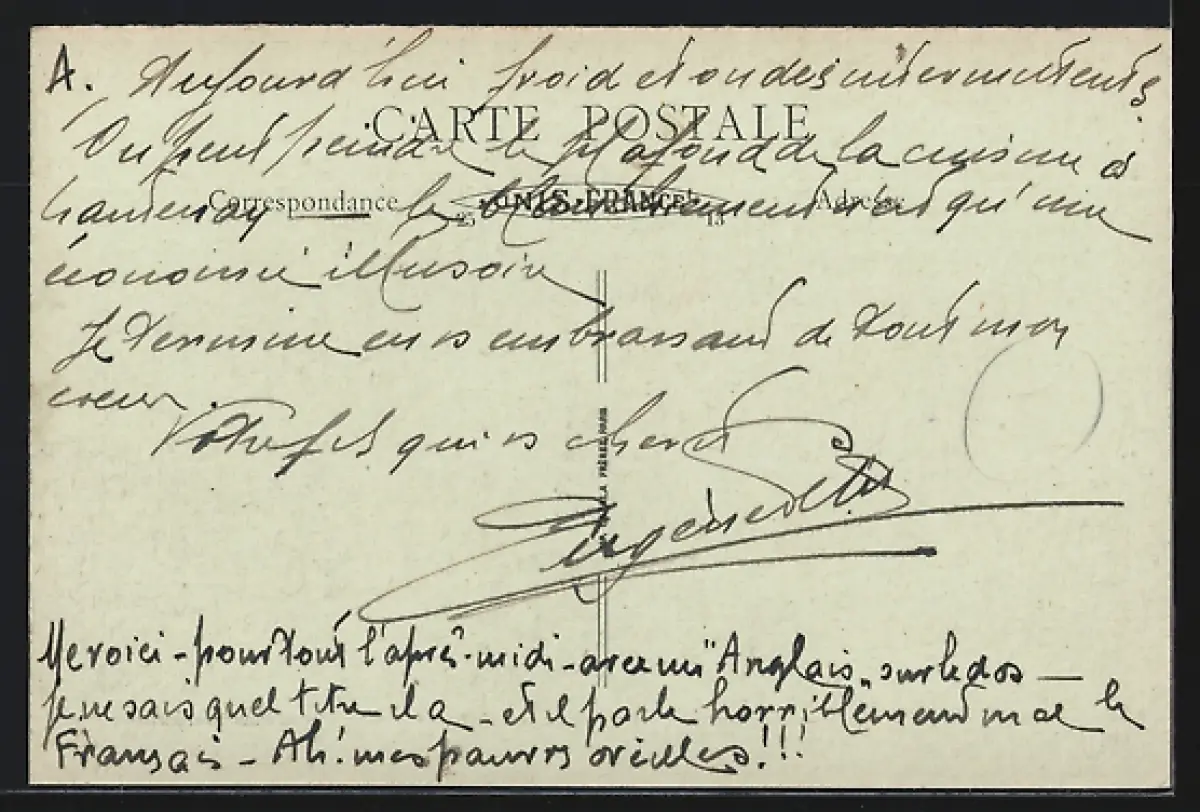 A. Aujourd'hui froid et ondées intermittentes
CARTE POSTALE
On peut peindre le plafond de la cuisine à
Correspondance Adresse
Chantenay le n'est qu'une
économie illusoire
Je termine en vs embrassant de tout mon
cœur.
Votre fils qui vs chérit
Eugène
Me voici - pour tout l'après-midi - avec un "Anglais" sur le dos —
je ne sais quel titre il a - et il parle horriblement mal le
Français - Ah! mes pauvres oreilles!!!